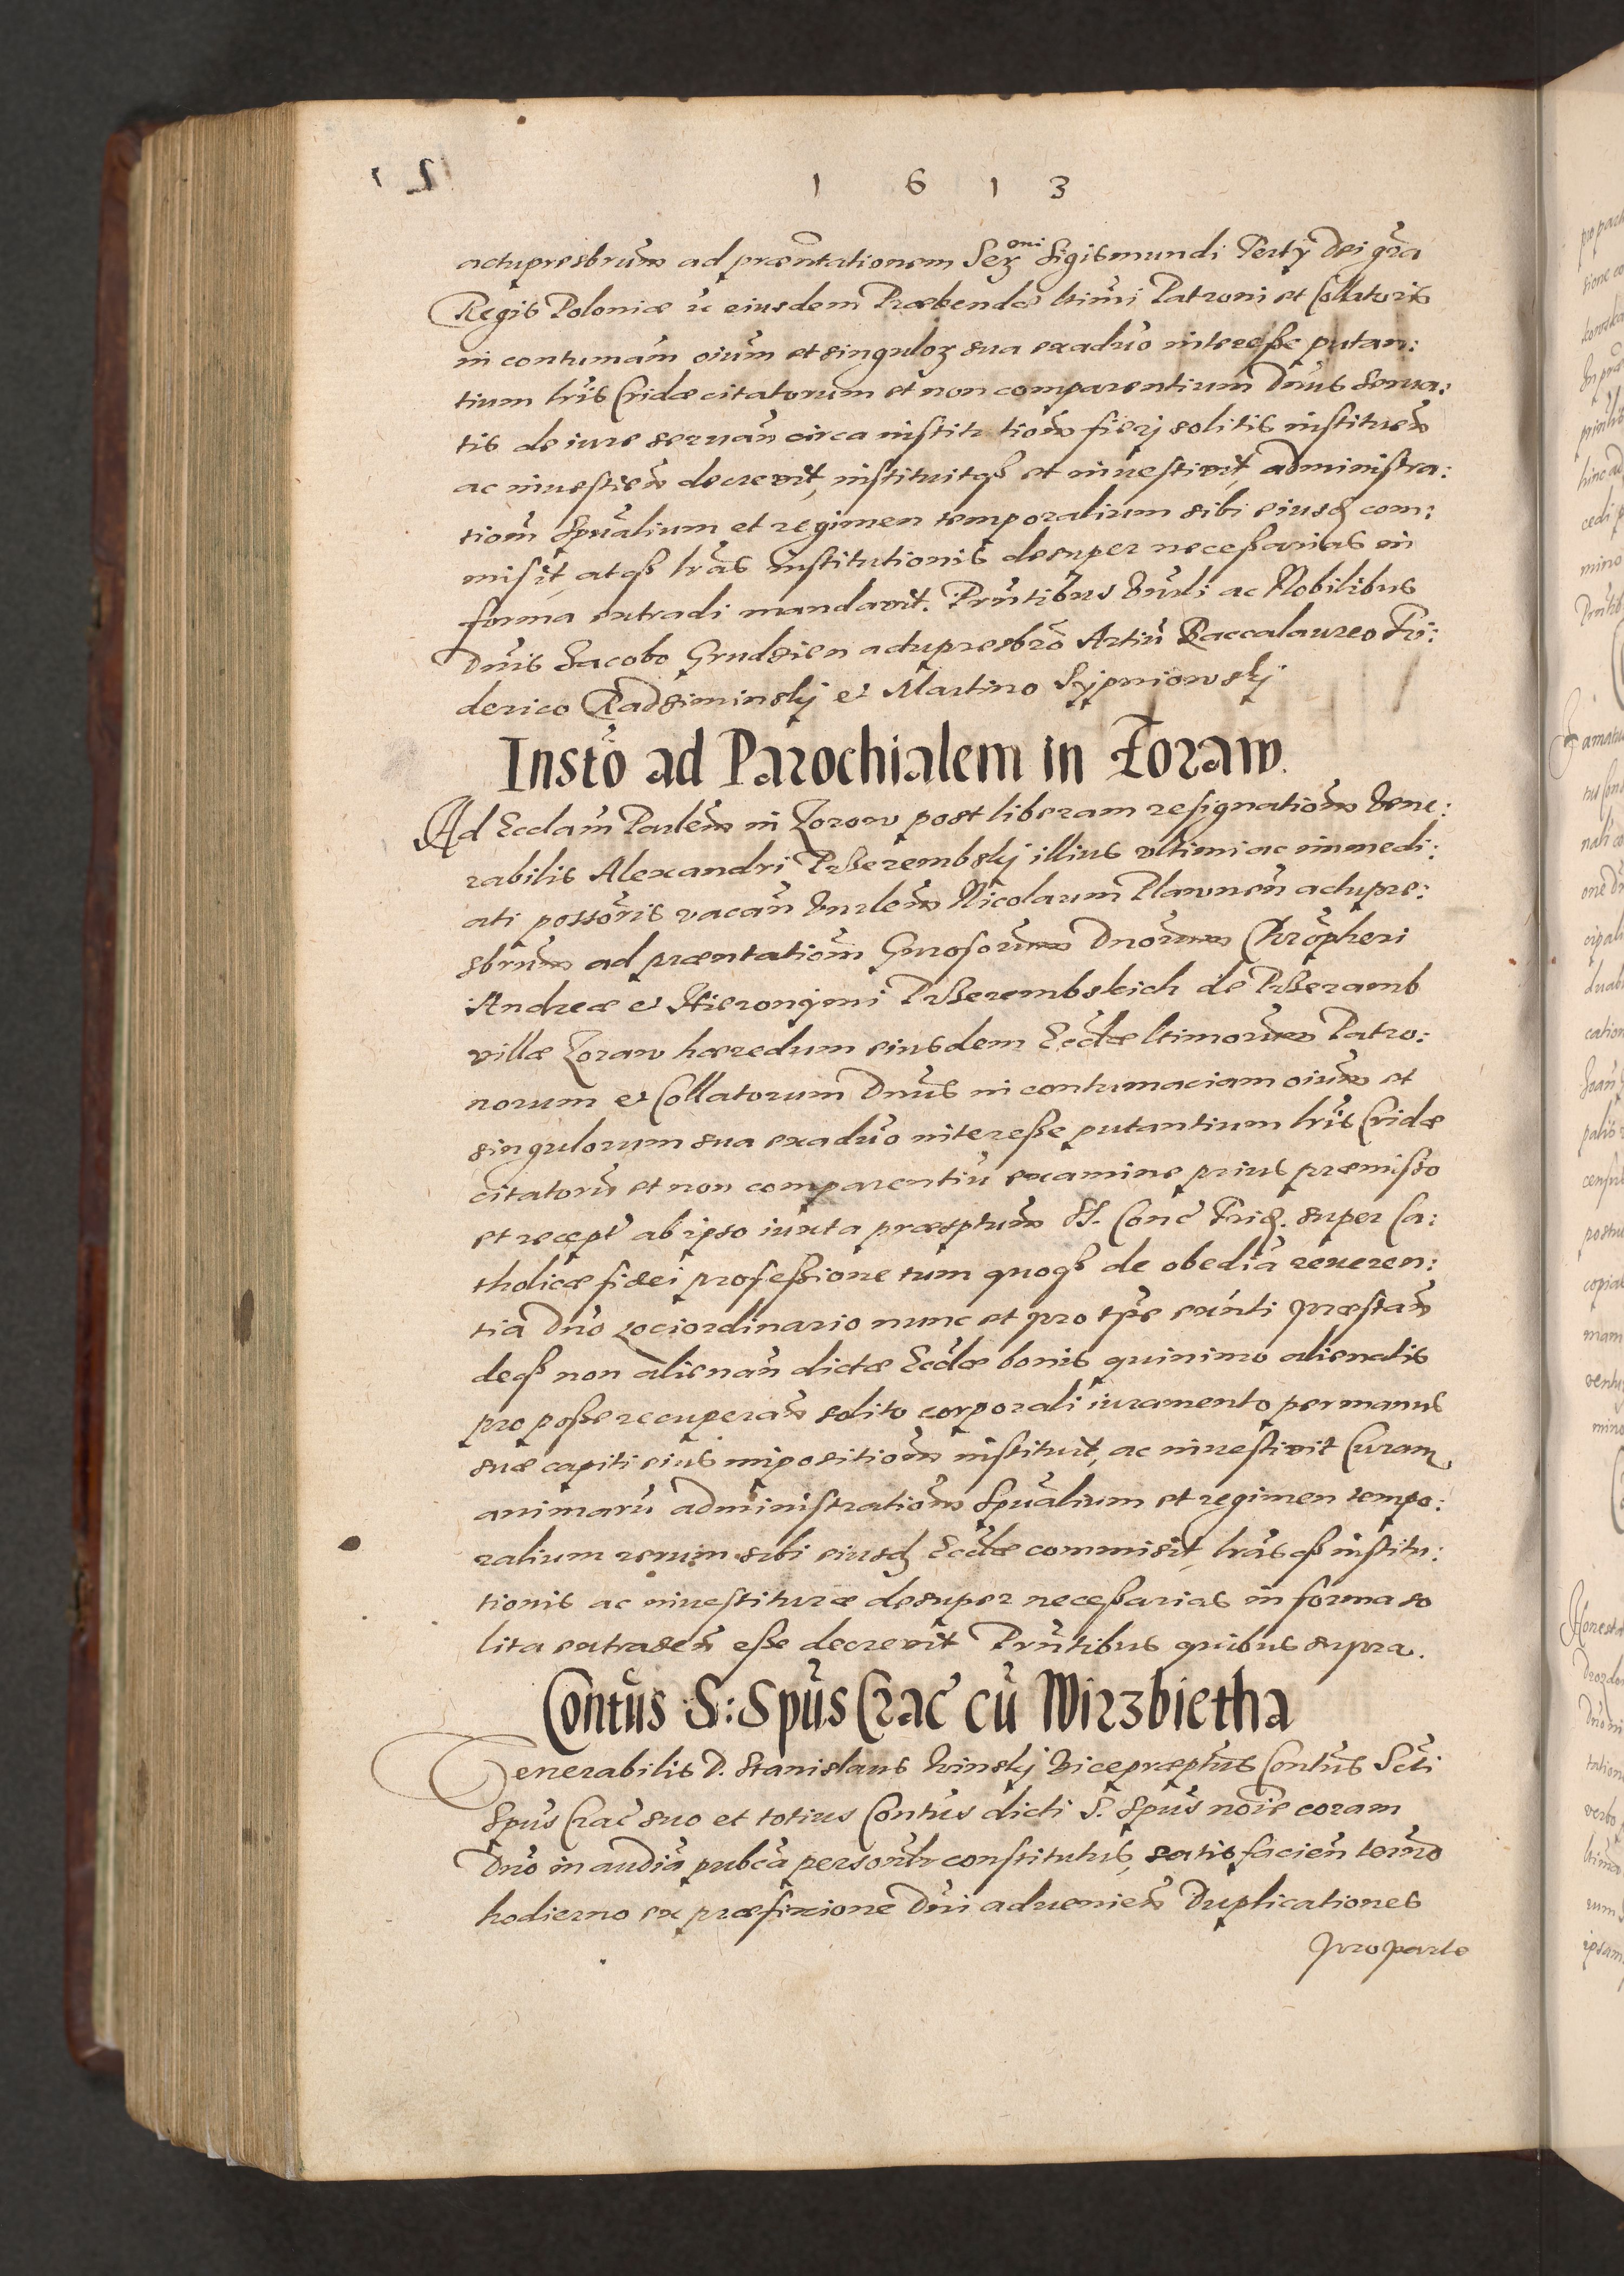 1 6 1 3
actupresbrum ad præntationem Ser oni Sigismundi Tertÿ Dei gra
Regis Poloniæ ac eiusdem Præbendæ ltimi Patroni et Collatoris
in contumam oium et singuloꝝ sua exaduo interesse putan:
tium lris Cridæ citatorum et non comparentium Dnus Serua:
tis de iure seruan circa institutiom fierj solitis instituen
ac inuestien decreuit, instituitqꝫ et inuestiuit, administra:
tiom Spualium et regimen temporalium sibi eiusd com:
misit, atqꝫ lras institutionis desuper necessarias in
forma extradi mandauit. Prntibus Vnrli ac Nobilibus
Dnis Jacobo Grudsien actupresbro Artiu Baccalaureo Fri:
derico Radziminskj et Martino Sypniowskj
Insto ad Parochialem in Zoraw.
Ad Ecclam Parlem in Zoraw post liberam resignatiom Vene:
rabilis Alexandri Przerembskj illius vltimi ac immedi:
ati possoris vacan Vnrlem Nicolaum Plawnen actupre:
sbrum ad præntatiom Gnrosorum Dnorum Chropheri
Andreæ et Hieronymi Przerembskich de Przeramb
villæ Zoraw hæredum eiusdem Ecclæ ltimorum Patro:
norum et Collatorum Dnus in contumaciam oium et
singulorum sua exaduo interesse putantium lris Cridæ
citatoru et non comparentiu examine prius præmisso
et recept ab ipso iuxta præsptum S. Conc Trid. super Ca:
tholicæ fidei professione tum quoqꝫ de obedia reueren:
tia Dno Lociordinario nunc et pro tpre exnti præstan
deqꝫ non alienan dictæ Ecclæ bonis quinimo alienatis
pro posse recuperan solito corporali iuramento per manus
suæ capiti eius impositiom instituit, ac inuestiuit Curam
animaru administratiom Spualium et regimen tempo:
ralium rerum sibi eiusd Ecclæ commisit, lrasqꝫ institu:
tionis ac inuestituræ desuper necessarias in forma so
lita extraden esse decreuit Prntibus quibus supra.
Contus S: Spus Crac cu Wirzbietha
Venerabilis D. Stanislaus Kinskj Vicepræptus Contus Scti
Spus Crac suo et totius Contus dicti S. Spus noie coram
Dno in audia pubca personlr constitutus, satisfacien termo
hodierno ex præfixione Dni aduenien Duplicationes
pro parte